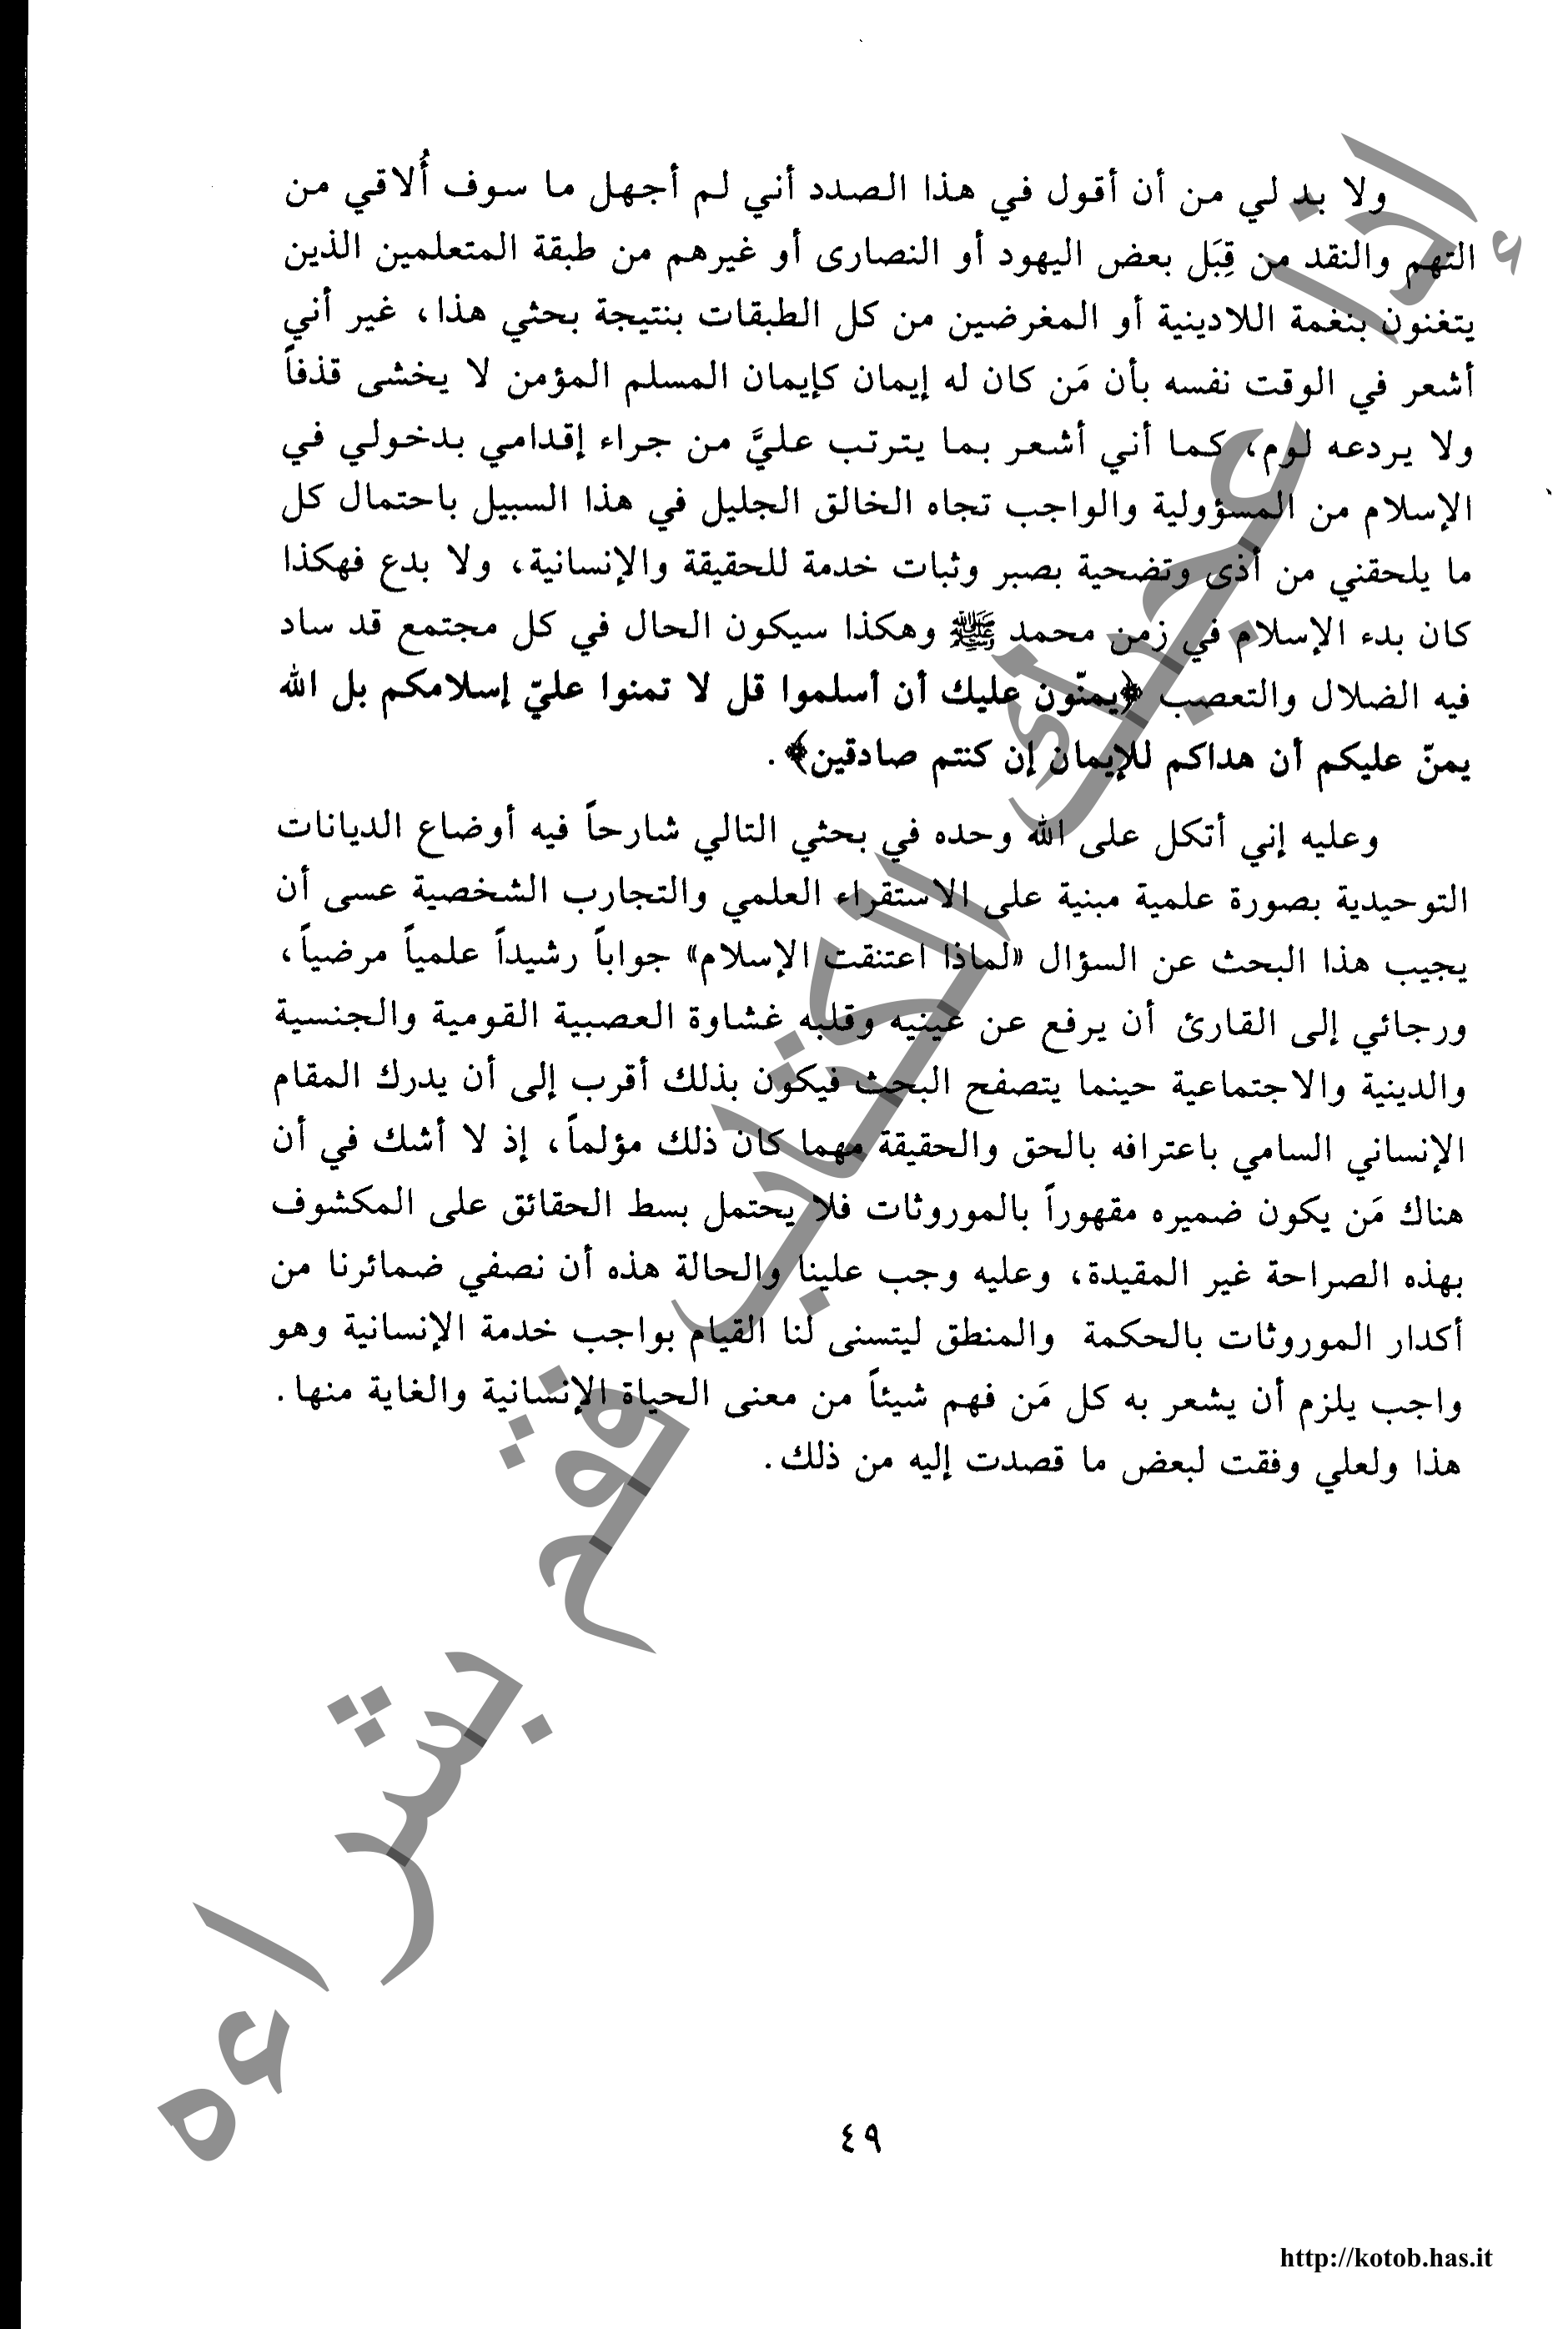 ولا بد لي من أن أقول في هذا الصدد أني لم أجهل ما سوف أُلاقي من
التهم والنقد من قِبَل بعض اليهود أو النصارى أو غيرهم من طبقة المتعلمين الذين
يتغنون بنغمة اللادينية أو المغرضين من كل الطبقات بنتيجة بحثي هذا، غير أني
أشعر في الوقت نفسه بأن مَن كان له إيمان كإيمان المسلم المؤمن لا يخشى قذفاً
ولا يردعه لوم، كما أني أشعر بما يترتب عليَّ من جراء إقدامي بدخولي في
الإسلام من المسؤولية والواجب تجاه الخالق الجليل في هذا السبيل باحتمال كل
ما يلحقني من أذى وتضحية بصبر وثبات خدمة للحقيقة والإنسانية، ولا بدع فهكذا
كان بدء الإسلام في زمن محمد ﷺ وهكذا سيكون الحال في كل مجتمع قد ساد
فيه الضلال والتعصب ﴿يمنّون عليك أن أسلموا قل لا تمنوا عليّ إسلامكم بل الله
يمنّ عليكم أن هداكم للإيمان إن كنتم صادقين﴾.
وعليه إني أتكل على الله وحده في بحثي التالي شارحاً فيه أوضاع الديانات
التوحيدية بصورة علمية مبنية على الاستقراء العلمي والتجارب الشخصية عسى أن
يجيب هذا البحث عن السؤال «لماذا اعتنقت الإسلام» جواباً رشيداً علمياً مرضياً،
ورجائي إلى القارئ أن يرفع عن عينيه وقلبه غشاوة العصبية القومية والجنسية
والدينية والاجتماعية حينما يتصفح البحث فيكون بذلك أقرب إلى أن يدرك المقام
الإنساني السامي باعترافه بالحق والحقيقة مهما كان ذلك مؤلماً، إذ لا أشك في أن
هناك مَن يكون ضميره مقهوراً بالموروثات فلا يحتمل بسط الحقائق على المكشوف
بهذه الصراحة غير المقيدة، وعليه وجب علينا والحالة هذه أن نصفي ضمائرنا من
أكدار الموروثات بالحكمة والمنطق ليتسنى لنا القيام بواجب خدمة الإنسانية وهو
واجب يلزم أن يشعر به كل مَن فهم شيئاً من معنى الحياة الإنسانية والغاية منها.
هذا ولعلي وفقت لبعض ما قصدت إليه من ذلك.
إذا أعجبك الكتاب قم بشراءه
٤٩
http://kotob.has.it